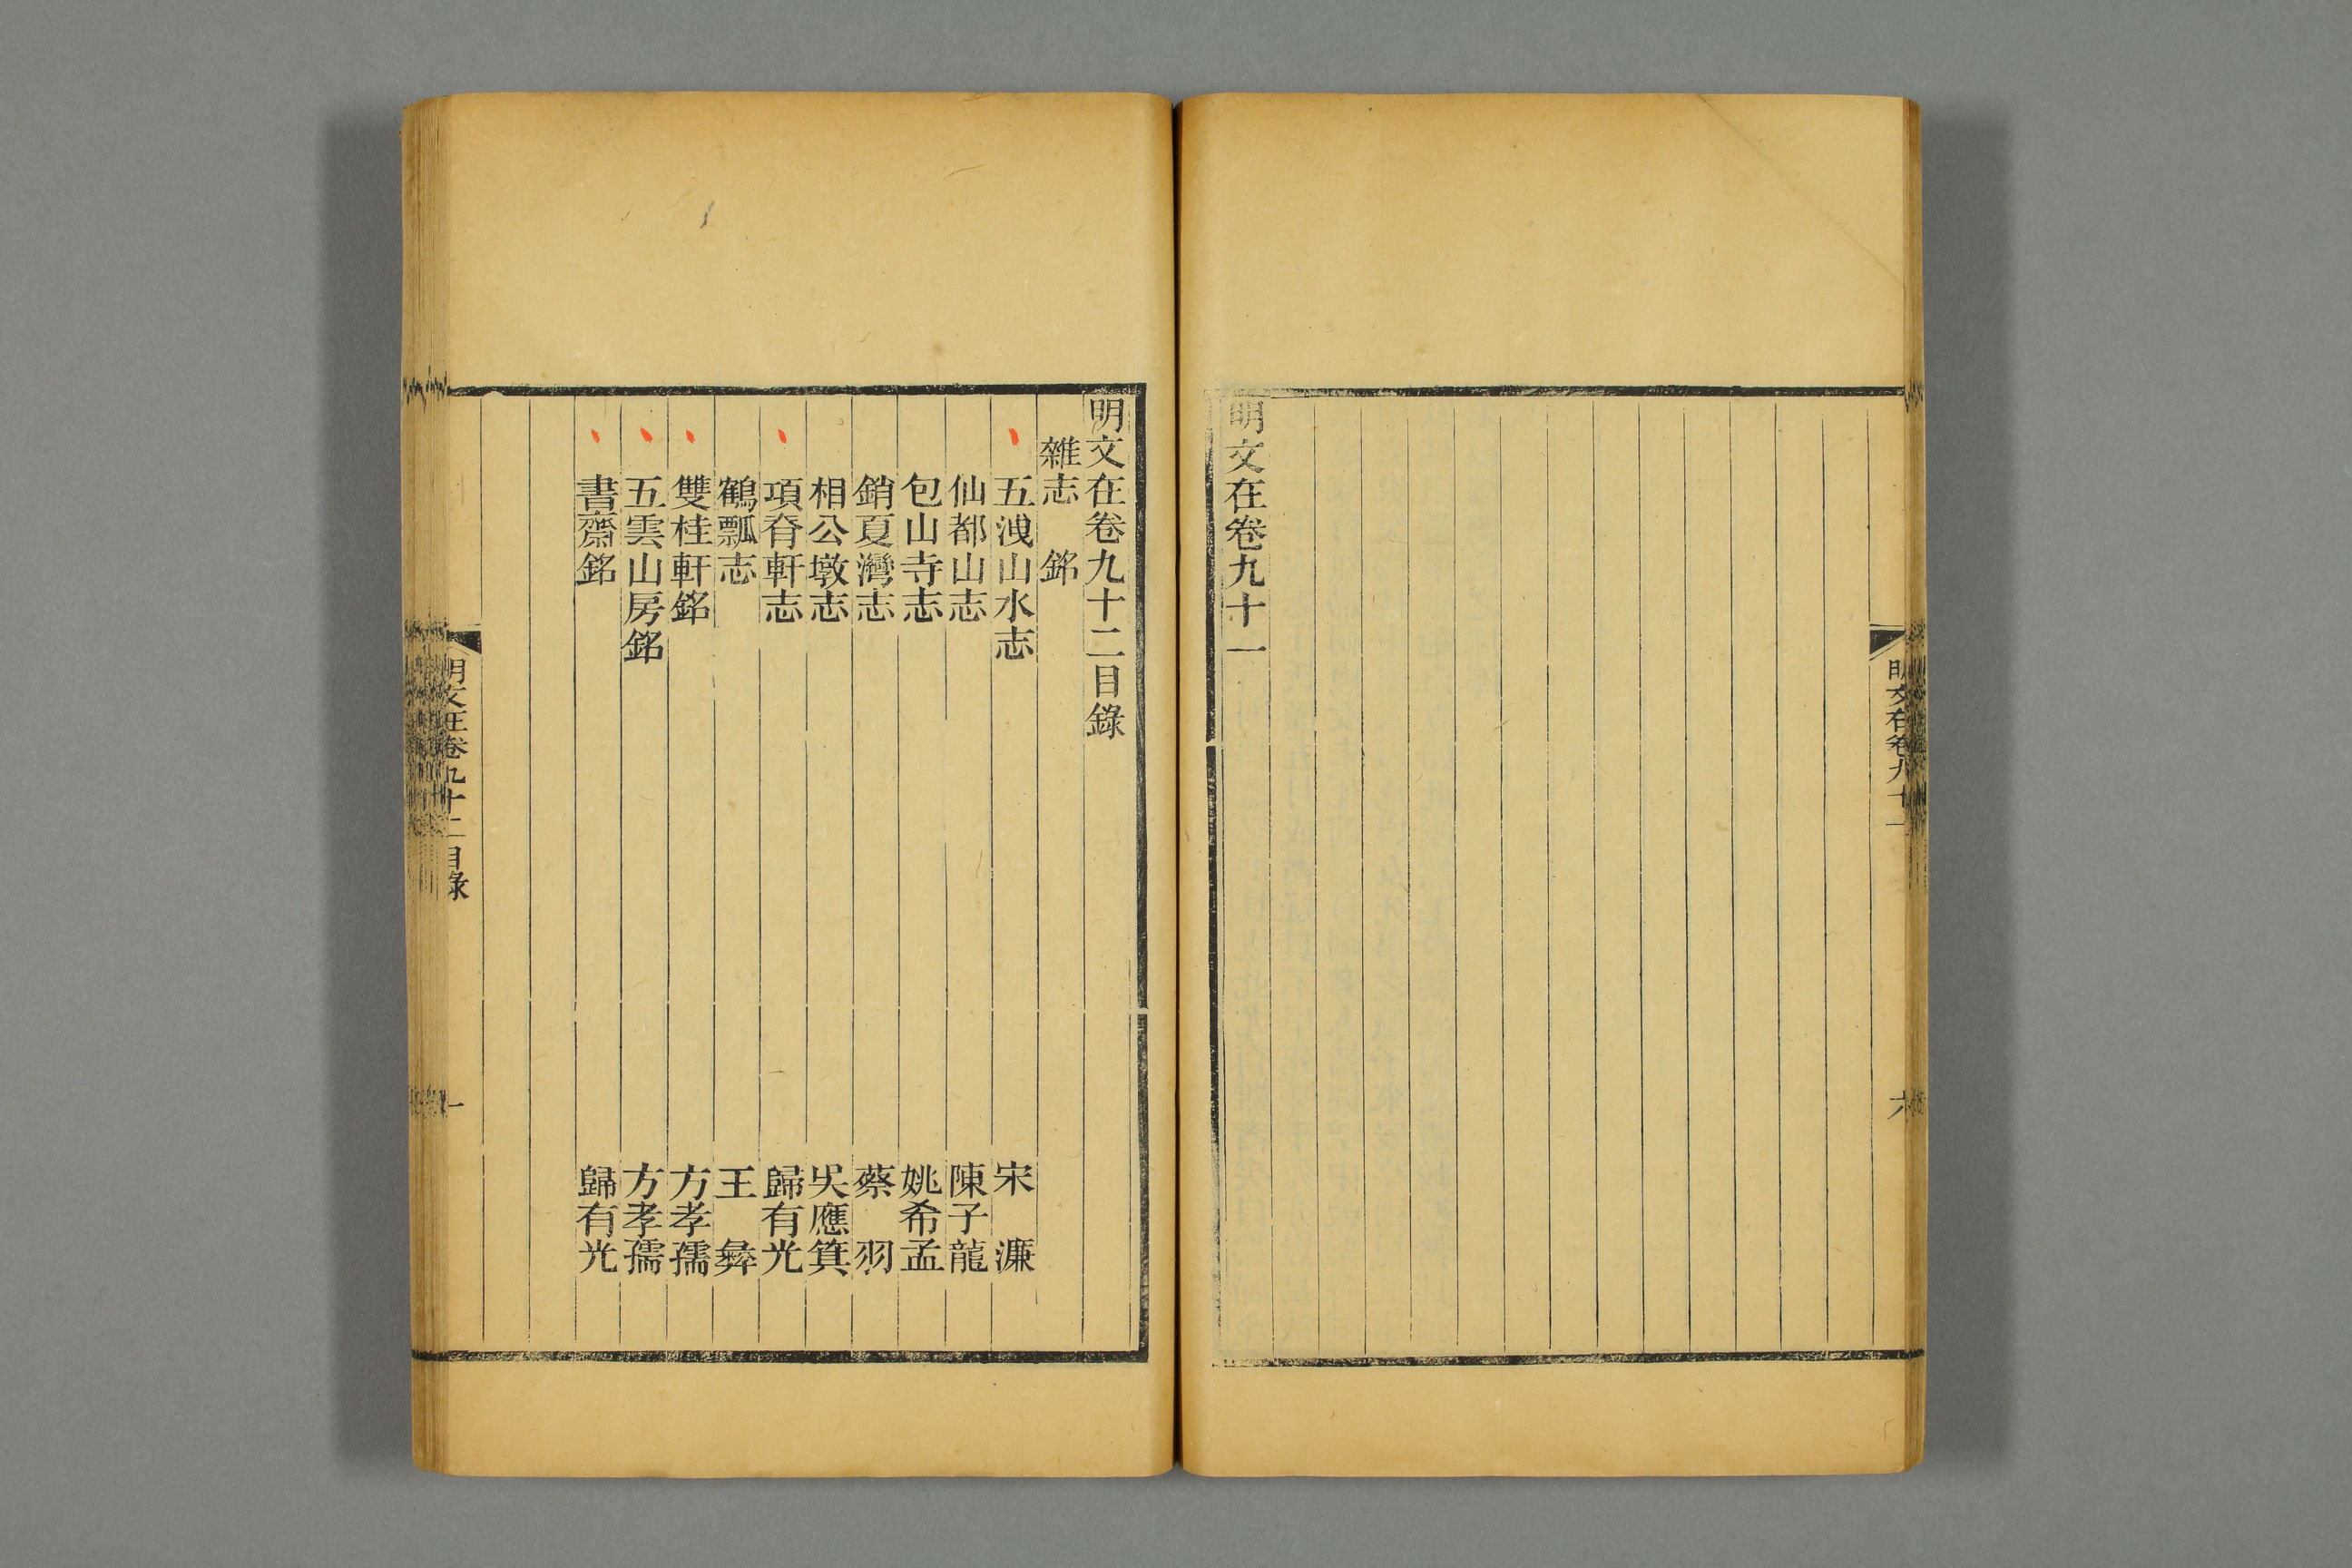 明文在卷九十一
六
明文在卷九十一
明文在卷九十二目錄
雜志 銘
五洩山水志 宋濂
仙都山志 陳子龍
包山寺志 姚希孟
銷夏灣志 蔡羽
相公墩志 吳應箕
項脊軒志 歸有光
鶴瓢志 王彝
雙桂軒銘 方孝孺
五雲山房銘 方孝孺
書齋銘 歸有光
明文在卷九十二目錄
一